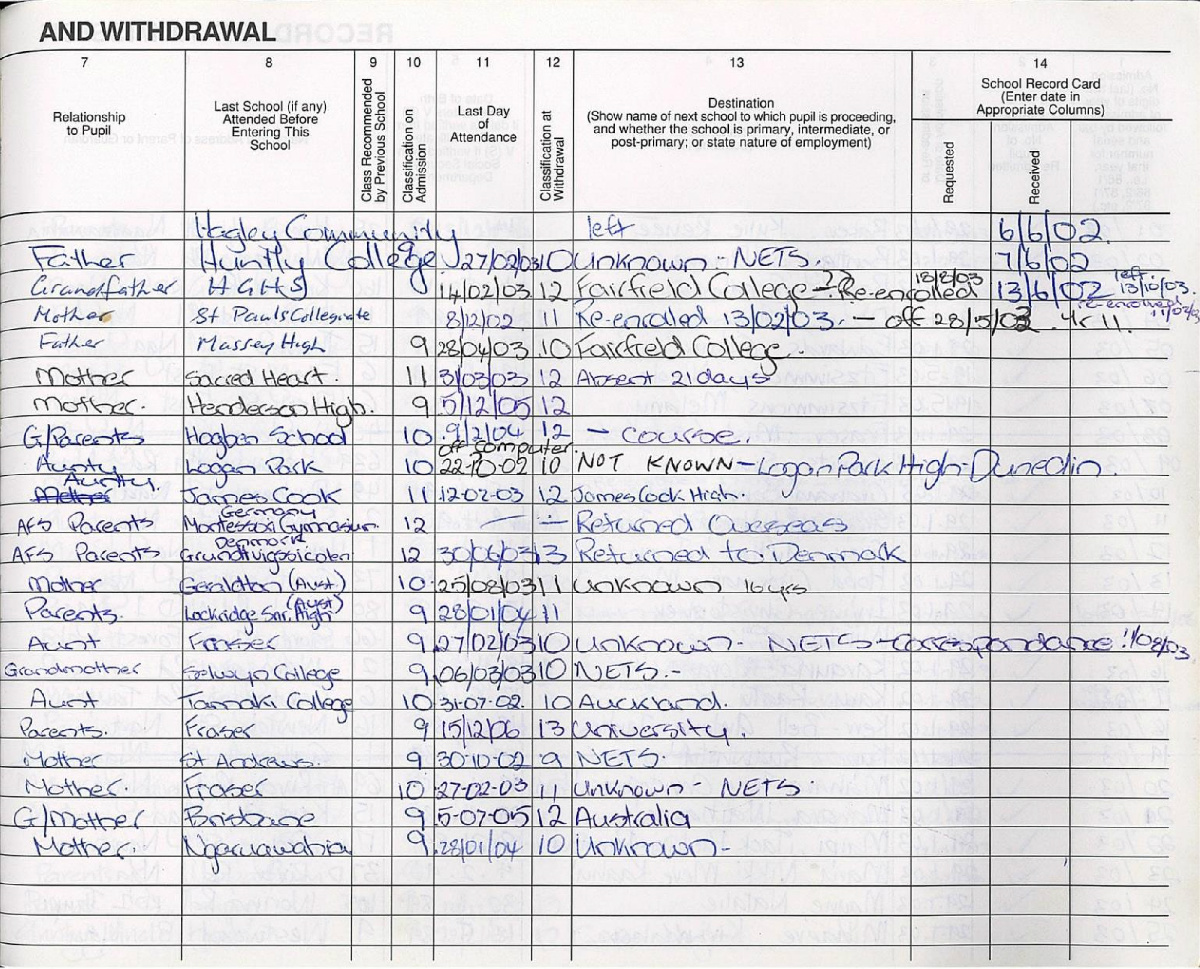 AND WITHDRAWAL
7 8 9 10 11 12 13 14
Relationship to Pupil
Last School (if any) Attended Before Entering This School
Class Recommended by Previous School
Classification on Admission
Last Day of Attendance
Classification at Withdrawal
Destination
(Show name of next school to which pupil is proceeding, and whether the school is primary, intermediate, or post-primary; or state nature of employment)
School Record Card
(Enter date in Appropriate Columns)
Requested
Received
Hagley Community left 6/6/02.
Father Huntly College 9 27/02/03 10 Unknown - NETS. 7/6/02
Grandfather HGHS 14/02/03 12 Fairfield College - ?? Re-enrolled 18/8/03 13/6/02 left 13/10/03.
re-enrolled
Mother St Pauls Collegiate 8/12/02 11 Re-enrolled 13/02/03. - off 28/5/03 Yr 11.
Father Massey High 9 28/04/03 10 Fairfield College.
Mother Sacred Heart. 11 3/03/03 12 Absent 21 days
Mother. Henderson High. 9 5/12/05 12
G/Parents Hogben School 10 9/2/04 12 - course.
off computer
Aunty Logan Park 10 22-10-02 10 NOT KNOWN - Logan Park High - Dunedin
Aunty
Mother James Cook 11 12-02-03 12 James Cook High.
Germany
AFS Parents Montessori Gymnasium 12 - - Returned Overseas
Denmark
AFS Parents 12 30/06/03 13 Returned to Denmark
Mother Geraldton (Aust) 10 25/08/03 11 Unknown 16yrs
Parents. Lockridge Snr. High (Aust) 9 28/01/04 11
Aunt Fraser 9 27/02/03 10 Unknown - NETS - Correspondance 11/08/03
Grandmother Selwyn College 9 06/03/03 10 NETS. -
Aunt Tamaki College 10 31-07-02. 10 Auckland.
Parents. Fraser 9 15/12/06 13 University.
Mother St Andrews. 9 30-10-02 9 NETS.
Mother. Fraser 10 27-02-03 11 Unknown - NETS
G/Mother Brisbane 9 5-07-05 12 Australia
Mother. Ngaruawahia 9 28/01/04 10 Unknown -